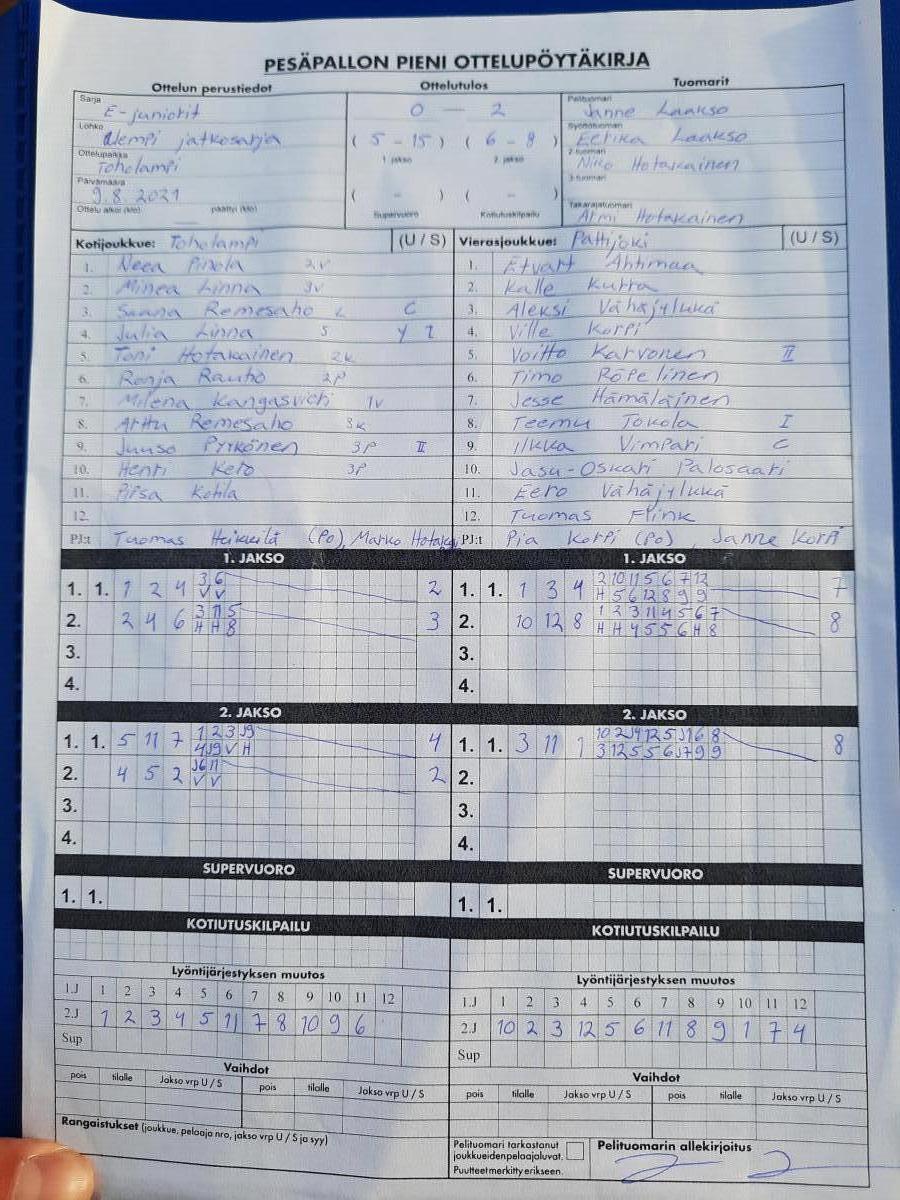 PESÄPALLON PIENI OTTELUPÖYTÄKIRJA
Ottelun perustiedot Ottelutulos Tuomarit
Sarja E-juniorit 0 - 2 Pelituomari Janne Laakso
Lohko Alempi jatkosarja ( 5 - 15 ) ( 6 - 8 ) Syöttötuomari Eerika Laakso
1. jakso 2. jakso
Ottelupaikka Toholampi 2-tuomari Niko Hotakainen
3-tuomari
Päivämäärä 9.8.2021 ( - ) ( - )
Ottelu alkoi (klo) päättyi (klo) Supervuoro Kotiutuskilpailu Takarajatuomari Armi Hotakainen
Kotijoukkue: Toholampi (U / S) Vierasjoukkue: Pattijoki (U / S)
1. Neea 2v 1. Etvart Ahhmaa
2. Minea Linna 3v 2. Kalle Kurra
3. Saana Remesaho L C 3. Aleksi Vähäjylkkä
4. Julia Linna S 4. Ville Korpi
5. Toni Hotakainen 2k 5. Voitto Karvonen II
6. Ronja Rauho 2p 6. Timo Röpelinen
7. Milena Kangasvieri 1v 7. Jesse Hämäläinen
8. Arttu Remesaho 3k 8. Teemu Tokola I
9. Juuso Pyykönen 3p II 9. Ilkka Vimpari C
10. Henri Keto 3p 10. Jasu-Oskari Palosaari
11. Pipsa Kotila 11. Eero Vähäjylkkä
12. 12. Tuomas Flink
PJ:t Tuomas Heikkilä (Po), Marko PJ:t Pia Korpi (Po), Janne Korpi
1. JAKSO 1. JAKSO
3 6 2 10 11 5 6 7 12
1. 1. 1 2 4 V V 2 1. 1. 1 3 4 H 5 6 12 8 9 9 7
3 11 5 1 2 3 11 4 5 6 7
2. 2 4 6 H H 8 3 2. 10 12 8 H H 4 5 5 6 H 8 8
3. 3.
4. 4.
2. JAKSO 2. JAKSO
1 2 3 J9 10 2 J4 12 5 J1 6 8
1. 1. 5 11 7 4 J9 V H 4 1. 1. 3 11 1 3 12 5 5 6 J7 9 9 8
J6 11
2. 4 5 2 V V 2 2.
3. 3.
4. 4.
SUPERVUORO SUPERVUORO
1. 1. 1. 1.
KOTIUTUSKILPAILU KOTIUTUSKILPAILU
Lyöntijärjestyksen muutos Lyöntijärjestyksen muutos
1.J 1 2 3 4 5 6 7 8 9 10 11 12 1.J 1 2 3 4 5 6 7 8 9 10 11 12
2.J 1 2 3 4 5 11 7 8 10 9 6 2.J 10 2 3 12 5 6 11 8 9 1 7 4
Sup Sup
Vaihdot Vaihdot
pois tilalle Jakso vrp U / S pois tilalle Jakso vrp U / S pois tilalle Jakso vrp U / S pois tilalle Jakso vrp U / S
Rangaistukset (joukkue, pelaaja nro, jakso vrp U / S ja syy)
Pelituomari tarkastanut Pelituomarin allekirjoitus
joukkueiden pelaajaluvat.
Puutteet merkitty erikseen.